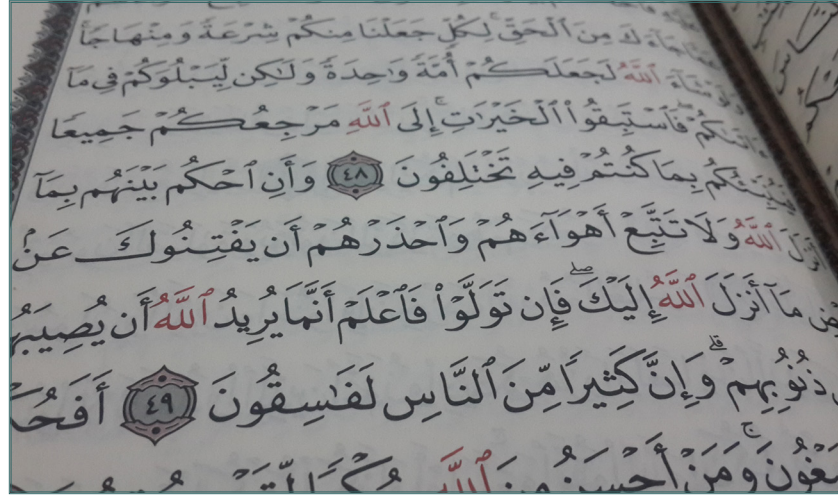 جَآءَكَ مِنَ ٱلْحَقِّ ۚ لِكُلٍّ جَعَلْنَا مِنكُمْ شِرْعَةً وَمِنْهَاجًا
وَلَوْ شَآءَ ٱللَّهُ لَجَعَلَكُمْ أُمَّةً وَٰحِدَةً وَلَٰكِن لِّيَبْلُوَكُمْ فِى مَآ
ءَاتَىٰكُمْ ۖ فَٱسْتَبِقُوا۟ ٱلْخَيْرَٰتِ ۚ إِلَى ٱللَّهِ مَرْجِعُكُمْ جَمِيعًا
فَيُنَبِّئُكُم بِمَا كُنتُمْ فِيهِ تَخْتَلِفُونَ ٤٨ وَأَنِ ٱحْكُم بَيْنَهُم بِمَآ
أَنزَلَ ٱللَّهُ وَلَا تَتَّبِعْ أَهْوَآءَهُمْ وَٱحْذَرْهُمْ أَن يَفْتِنُوكَ عَنۢ
بَعْضِ مَآ أَنزَلَ ٱللَّهُ إِلَيْكَ ۖ فَإِن تَوَلَّوْا۟ فَٱعْلَمْ أَنَّمَا يُرِيدُ ٱللَّهُ أَن يُصِيبَهُم
ذُنُوبِهِمْ ۗ وَإِنَّ كَثِيرًا مِّنَ ٱلنَّاسِ لَفَٰسِقُونَ ٤٩ أَفَحُكْمَ
يَبْغُونَ ۚ وَمَنْ أَحْسَنُ مِنَ ٱللَّهِ